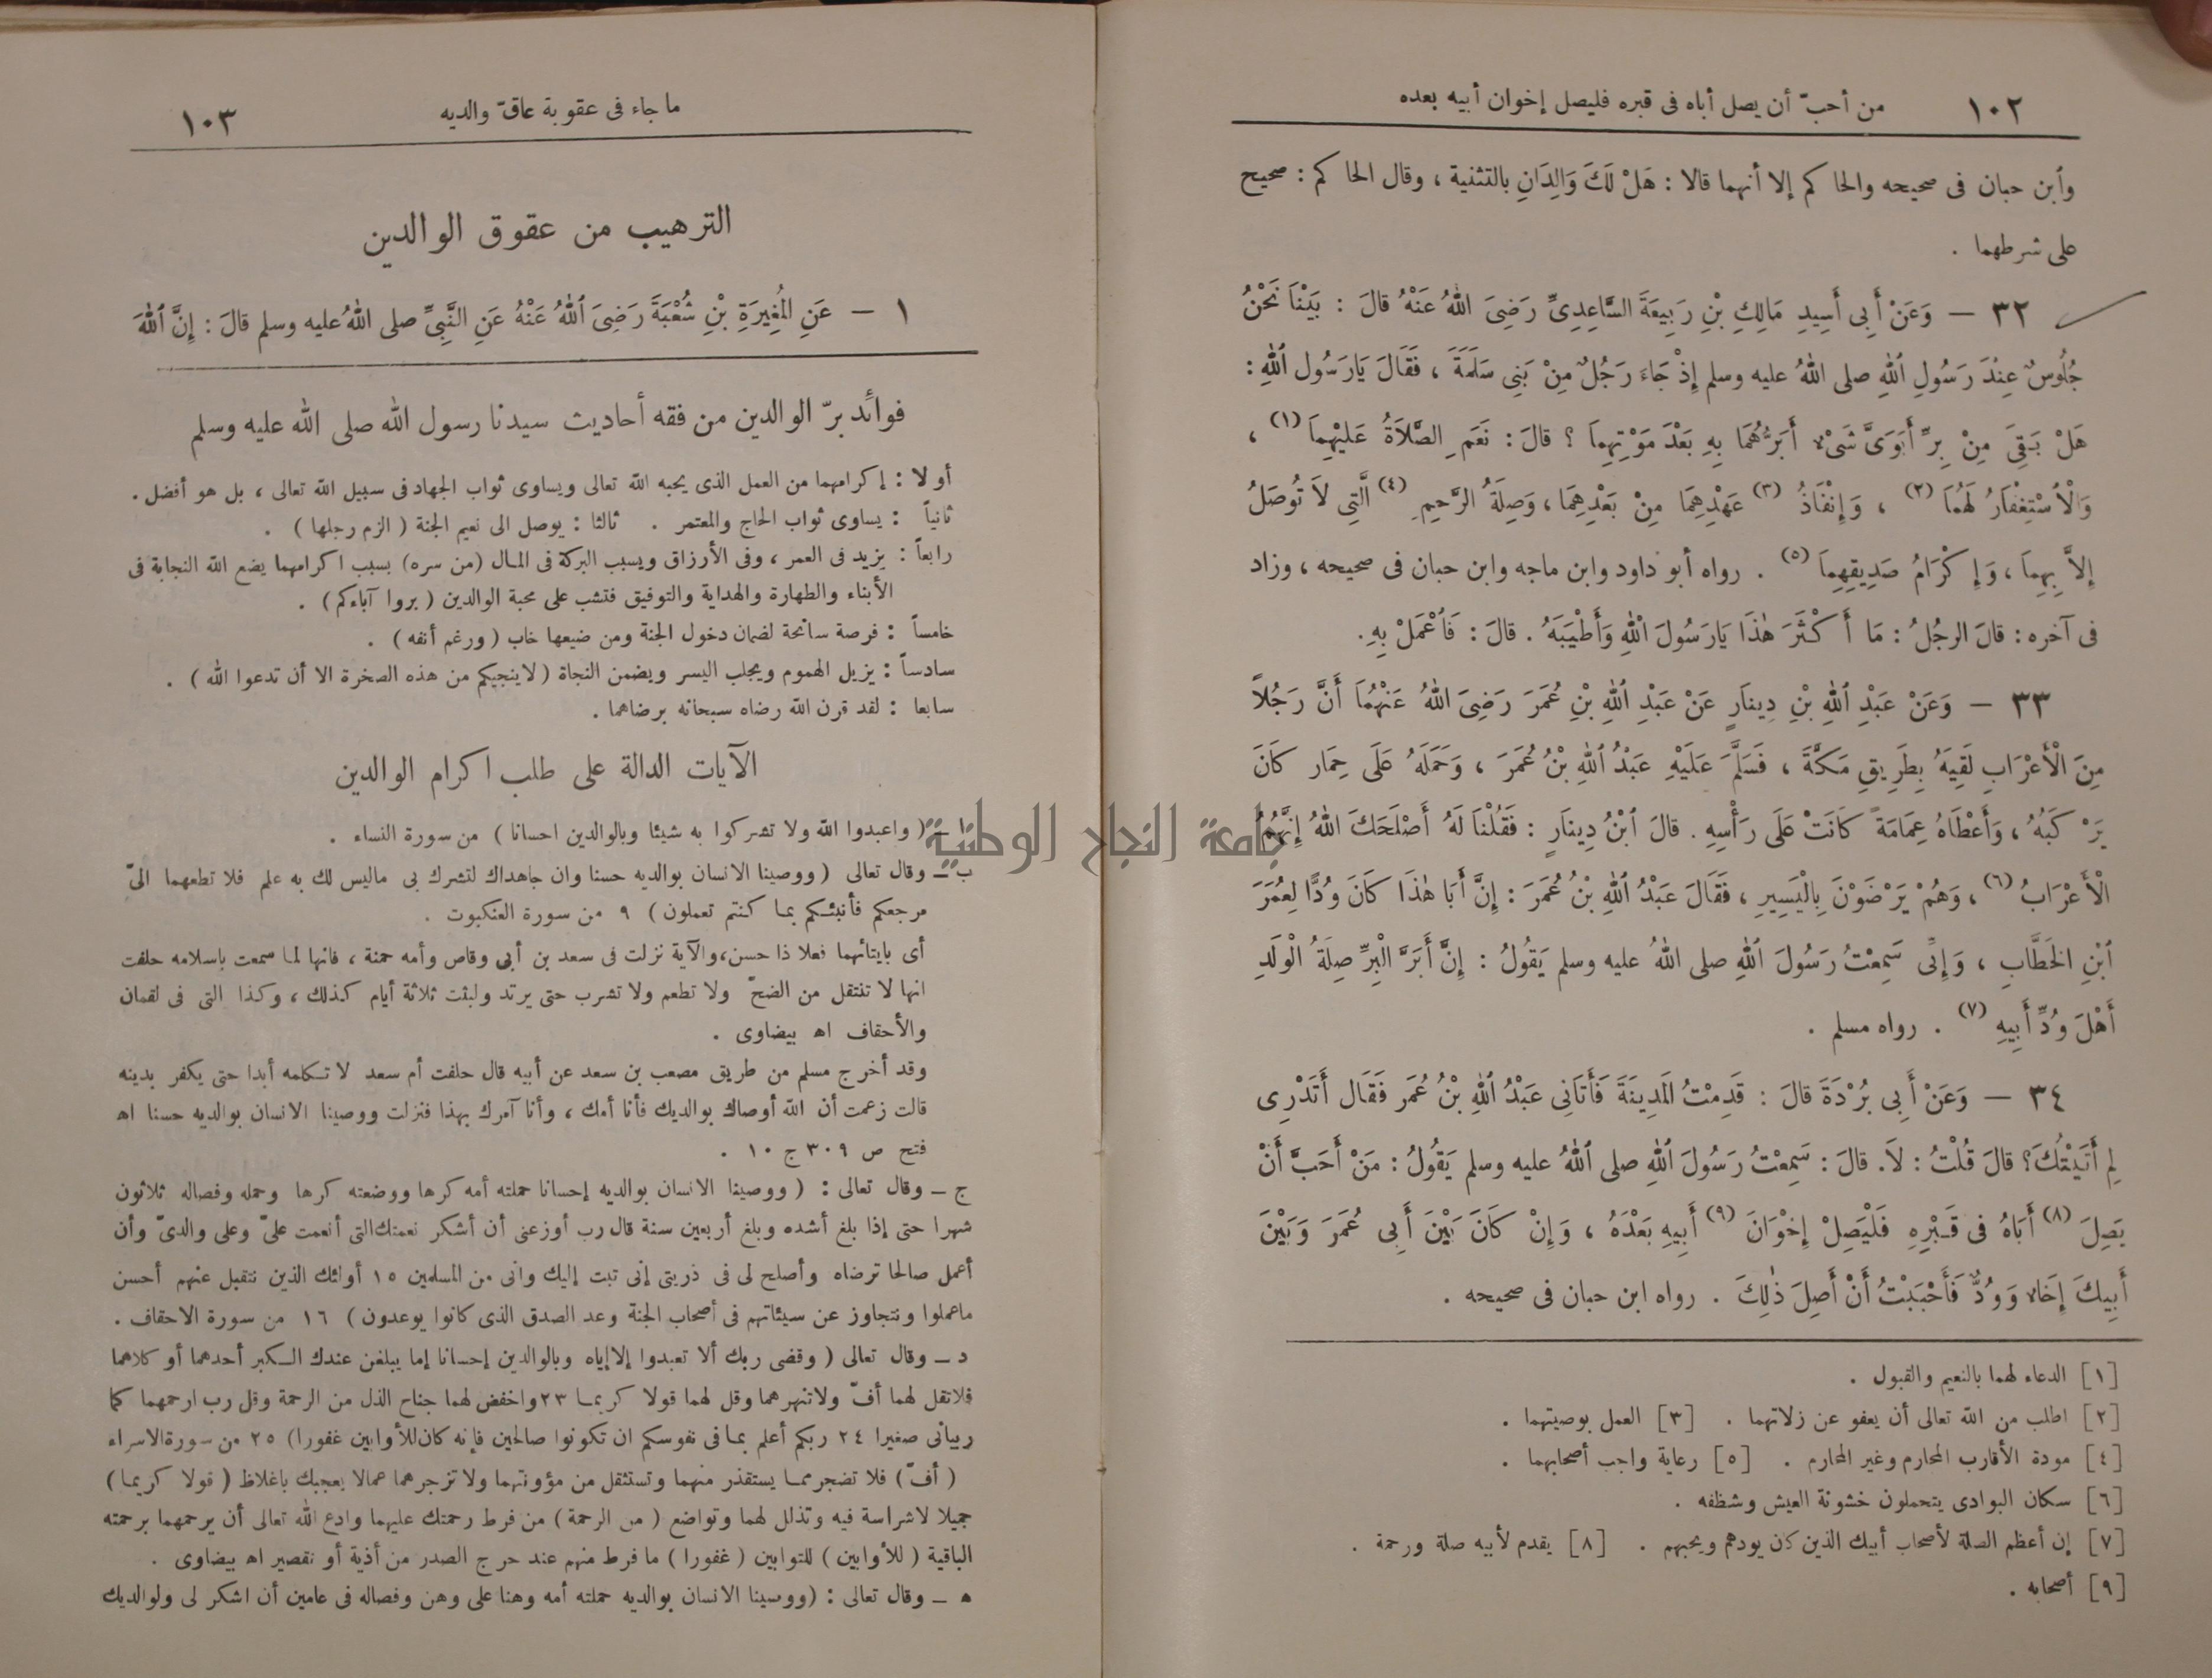 ١٠٢ من أحبّ أن يصل أباه فى قبره فليصل إخوان أبيه بعده
وٱبن حبان فى صحيحه والحاكم إلا أنهما قالا : هَلْ لَكَ وَالِدَانِ بالتثنية ، وقال الحاكم : صحيح
على شرطهما .
٣٢ — وَعَنْ أَبِى أَسِيدِ مَالِكِ بْنِ رَبِيعَةَ السَّاعِدِىِّ رَضِىَ اللهُ عَنْهُ قالَ : بَيْنَا نَحْنُ
جُلُوسٌ عِنْدَ رَسُولِ ٱللهِ صلى اللهُ عليه وسلم إِذْ جَاءَ رَجُلٌ مِنْ بَنِى سَلَمَةَ ، فَقَالَ يَارَسُول ٱللهِ :
هَلْ بَقِىَ مِنْ بِرِّ أَبَوَىَّ شَىْءٌ أَبَرُّهُمَا بِهِ بَعْدَ مَوْتِهِمَا ؟ قالَ : نَعَمِ الصَّلَاةُ عَلَيْهِمَا (١) ،
وَالْاسْتِغْفَارُ لَهُمَا (٢) ، وَإِنْفَاذُ (٣) عَهْدِهِمَا مِنْ بَعْدِهِمَا ، وَصِلَةُ الرَّحِمِ (٤) الَّتِى لَا تُوصَلُ
إِلاَّ بِهِمَا ، وَإِكْرَامُ صَدِيقِهِمَا (٥) . رواه أبو داود وابن ماجه وابن حبان فى صحيحه ، وزاد
فى آخره : قالَ الرجُلُ : مَا أَكْثَرَ هٰذَا يَارَسُولَ ٱللهِ وَأَطْيَبَهُ . قالَ : فَٱعْمَلْ بِهِ .
٣٣ — وَعَنْ عَبْدِ ٱللهِ بْنِ دِينَارٍ عَنْ عَبْدِ ٱللهِ بْنِ عُمَرَ رَضِىَ اللهُ عَنْهُمَا أَنَّ رَجُلاً
مِنَ الْأَعْرَابِ لَقِيَهُ بِطَرِيقِ مَكَّةَ ، فَسَلَّمَ عَلَيْهِ عَبْدُ ٱللهِ بْنُ عُمَرَ ، وَحَمَلَهُ عَلَى حِمَار كَانَ
يَرْكَبُهُ ، وَأَعْطَاهُ عِمَامَةً كَانَتْ عَلَى رَأْسِهِ . قالَ ٱبْنُ دِينَارٍ : فَقُلْنَا لَهُ أَصْلَحَكَ اللهُ إِنَّهُمُ
الْأَعْرَابُ (٦) ، وَهُمْ يَرْضَوْنَ بِالْيَسِيرِ ، فَقَالَ عَبْدُ ٱللهِ بْنُ عُمَرَ : إِنَّ أَبَا هٰذَا كَانَ وُدًّا لِعُمَرَ
ٱبْنِ الخَطَّابِ ، وَإِنِّى سَمِعْتُ رَسُولَ ٱللهِ صلى اللهُ عليه وسلم يَقُولُ : إِنَّ أَبَرَّ الْبِرِّ صِلَةُ الْوَلَدِ
أَهْلَ وُدِّ أَبِيهِ (٧) . رواه مسلم .
٣٤ — وَعَنْ أَبِى بُرْدَةَ قالَ : قَدِمْتُ المَدِينَةَ فَأَتَانِى عَبْدُ ٱللهِ بْنُ عُمَر فَقَال أَتَدْرِى
لِم أَتَيْتُكَ؟ قالَ قُلْتُ : لاَ. قالَ : سَمِعْتُ رَسُولَ ٱللهِ صلى ٱللهُ عليه وسلم يَقُولُ : مَنْ أَحَبَّ أَنْ
يَصِلَ (٨) أَبَاهُ فى قَبْرِهِ فَلْيَصِلْ إِخْوَانَ (٩) أَبِيهِ بَعْدَهُ ، وَإِنْ كَانَ بَيْنَ أَبِى عُمَرَ وَبَيْنَ
أَبِيكَ إِخَاءٌ وَوُدٌّ فَأَحْبَبْتُ أَنْ أَصِلَ ذٰلِكَ . رواه ابن حبان فى صحيحه .
[١] الدعاء لهما بالنعيم والقبول .
[٢] اطلب من الله تعالى أن يعفو عن زلاتهما . [٣] العمل بوصيتهما .
[٤] مودة الأقارب المحارم وغير المحارم . [٥] رعاية واجب أصحابهما .
[٦] سكان البوادى يتحملون خشونة العيش وشظفه .
[٧] إن أعظم الصلة لأصحاب أبيك الذين كان يودهم ويحبهم . [٨] يقدم لأبيه صلة ورحمة .
[٩] أصحابه .
ما جاء فى عقوبة عاقّ والديه ١٠٣
الترهيب من عقوق الوالدين
١ — عَنِ المُغِيرَةِ بْنِ شُعْبَةَ رَضِىَ ٱللهُ عَنْهُ عَنِ النَّبِىِّ صلى اللهُ عليه وسلم قالَ : إِنَّ ٱللهَ
فوائد برّ الوالدين من فقه أحاديث سيدنا رسول الله صلى الله عليه وسلم
أولا : إكرامهما من العمل الذى يحبه الله تعالى ويساوى ثواب الجهاد فى سبيل الله تعالى ، بل هو أفضل .
ثانياً : يساوى ثواب الحاج والمعتمر . ثالثا : يوصل الى نعيم الجنة ( الزم رجلها ) .
رابعاً : يزيد فى العمر ، وفى الأرزاق ويسبب البركة فى المال (من سره) بسبب اكرامهما يضع الله النجابة فى
الأبناء والطهارة والهداية والتوفيق فتشب على محبة الوالدين ( بروا آباءكم ) .
خامساً : فرصة سانحة لضمان دخول الجنة ومن ضيعها خاب ( ورغم أنفه ) .
سادساً : يزيل الهموم ويجلب اليسر ويضمن النجاة ( لاينجيكم من هذه الصخرة الا أن تدعوا الله ) .
سابعا : لقد قرن الله رضاه سبحانه برضاهما .
الآيات الدالة على طلب اكرام الوالدين
ا – ( واعبدوا الله ولا تشركوا به شيئا وبالوالدين احسانا ) من سورة النساء .
جامعة النجاح الوطنية
ب – وقال تعالى ( ووصينا الانسان بوالديه حسنا وان جاهداك لتشرك بى ماليس لك به علم فلا تطعهما الىّ
مرجعكم فأنبئكم بما كنتم تعملون ) ٩ من سورة العنكبوت .
أى بايتائهما فعلا ذا حسن، والآية نزلت فى سعد بن أبى وقاص وأمه حمنة ، فانها لما سمعت باسلامه حلفت
انها لا تنتقل من الضحّ ولا تطعم ولا تشرب حتى يرتد ولبثت ثلاثة أيام كذلك ، وكذا التى فى لقمان
والأحقاف اه بيضاوى .
وقد أخرج مسلم من طريق مصعب بن سعد عن أبيه قال حلفت أم سعد لا تكلمه أبدا حتى يكفر بدينه
قالت زعمت أن الله أوصاك بوالديك فأنا أمك ، وأنا آمرك بهذا فنزلت ووصينا الانسان بوالديه حسنا اه
فتح ص ٣٠٩ ج ١٠ .
ج – وقال تعالى : ( ووصينا الانسان بوالديه إحسانا حملته أمه كرها ووضعته كرها وحمله وفصاله ثلاثون
شهرا حتى إذا بلغ أشده وبلغ أربعين سنة قال رب أوزعنى أن أشكر نعمتك التى أنعمت علىّ وعلى والدىّ وأن
أعمل صالحا ترضاه وأصلح لى فى ذريتى إنى تبت إليك وانى من المسلمين ١٥ أولئك الذين نتقبل عنهم أحسن
ماعملوا ونتجاوز عن سيئاتهم فى أصحاب الجنة وعد الصدق الذى كانوا يوعدون ) ١٦ من سورة الاحقاف .
د – وقال تعالى ( وقضى ربك ألا تعبدوا إلا إياه وبالوالدين إحسانا إما يبلغن عندك الكبر أحدهما أو كلاهما
فلاتقل لهما أفّ ولاتنهرهما وقل لهما قولا كريما ٢٣ واخفض لهما جناح الذل من الرحمة وقل رب ارحمهما كما
ربيانى صغيرا ٢٤ ربكم أعلم بما فى نفوسكم ان تكونوا صالحين فإنه كان للأوابين غفورا) ٢٥ من سورة الاسراء
( أفّ ) فلا تضجر مما يستقذر منهما وتستثقل من مؤونتهما ولا تزجرهما عمالا يعجبك باغلاظ ( قولا كريما )
جميلا لاشراسة فيه وتذلل لهما وتواضع ( من الرحمة ) من فرط رحمتك عليهما وادع الله تعالى أن يرحمهما برحمته
الباقية ( للأوابين ) للتوابين ( غفورا ) ما فرط منهم عند حرج الصدر من أذية أو تقصير اه بيضاوى .
ه – وقال تعالى : ( ووصينا الانسان بوالديه حملته أمه وهنا على وهن وفصاله فى عامين أن اشكر لى ولوالديك